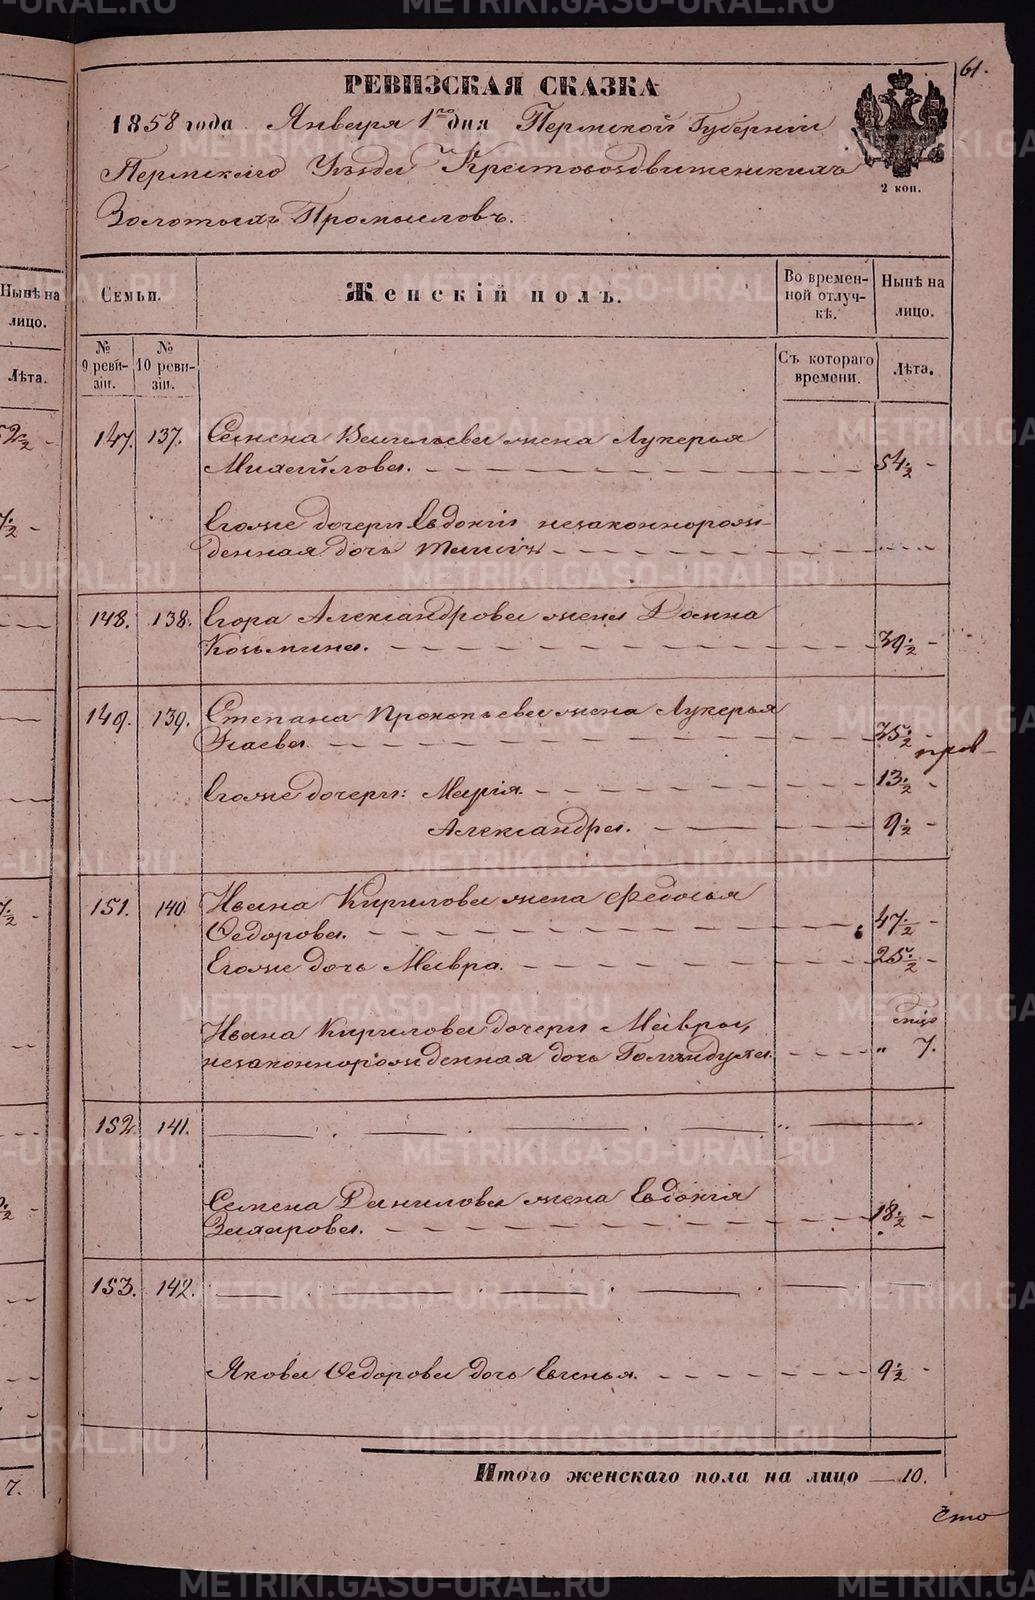 61.
РЕВИЗСКАЯ СКАЗКА
1858 года Января 1го дня Пермской Губернiи
Пермскаго Уѣзда Крестовоздвиженскихъ
2 коп.
Золотыхъ Промысловъ.
Нынѣ на лицо.
Лѣта.
Семьи.
Женскiй полъ.
Во времен-
ной отлуч-
кѣ.
Нынѣ на
лицо.
№ 9 реви-
зiи.
№ 10 реви-
зiи.
Съ котораго
времени.
Лѣта.
147. 137. Семена Васильева жена Лукерья
Михайлова. 54½
Егоже дочери Евдокiи незаконнорож-
денная дочь
148. 138. Егора Александрова жена Домна
Козьмина. 39½
149. 139. Степана Прокопьева жена Лукерья
Исаева. 35½
Егоже дочери: Марiя. 13½
Александра. 9½
151. 140 Ивана Кирилова жена Федосья
Ѳедорова. 47½
Егоже дочь Мавра. 25½
Ивана Кирилова дочери Мавры,
незаконнорожденная дочь 7.
152. 141.
Семена Данилова жена Евдокiя
Захарова. 18½
153. 142.
Якова Ѳедорова дочь Евгенья. 9½
Итого женскаго пола на лицо 10.
Что
7.
METRIKI.GASO-URAL.RU